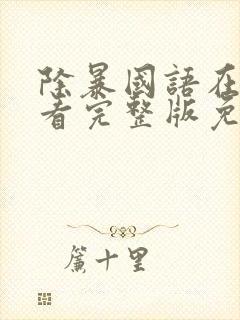 除暴國語在
看完整版免
簾十里